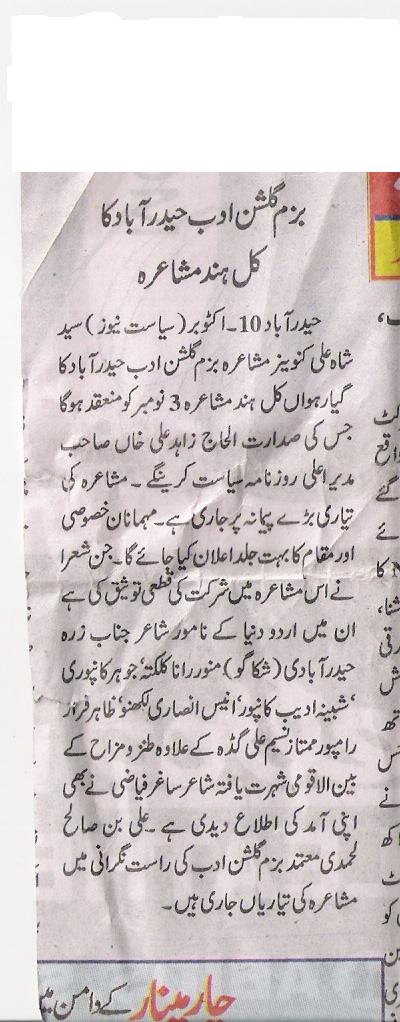 بزم گلشن ادب حیدرآباد کا
کل ہند مشاعرہ
حیدرآباد 10۔اکٹوبر (سیاست نیوز) سید
شاہ علی کنوینر مشاعرہ بزم گلشن ادب حیدرآباد کا
گیارھواں کل ہند مشاعرہ 3 نومبر کو منعقد ہوگا
جس کی صدارت الحاج زاہد علی خاں صاحب
مدیر اعلی روزنامہ سیاست کرینگے۔ مشاعرہ کی
تیاری بڑے پیمانہ پر جاری ہے۔ مہمانان خصوصی
اور مقام کا بہت جلد اعلان کیا جائے گا۔ جن شعرا
نے اس مشاعرہ میں شرکت کی قطعی توثیق کی ہے
ان میں اردو دنیا کے نامور شاعر جناب زرہ
حیدرآبادی (شکاگو) منور رانا کلکتہ' جوہر کانپوری
'شبینہ ادیب کانپور' انیس انصاری لکھنو' ظاہر فراز
رامپور ممتاز نسیم علی گڈہ کے علاوہ طنز و مزاح کے
بین الاقومی شہرت یافتہ شاعر ساغر فیاضی نے بھی
اپنی آمد کی اطلاع دیدی ہے ۔ علی بن صالح
لحمدی معتمد بزم گلشن ادب کی راست نگرانی میں
مشاعرہ کی تیاریاں جاری ہیں۔
چار مینار کے دامن میں